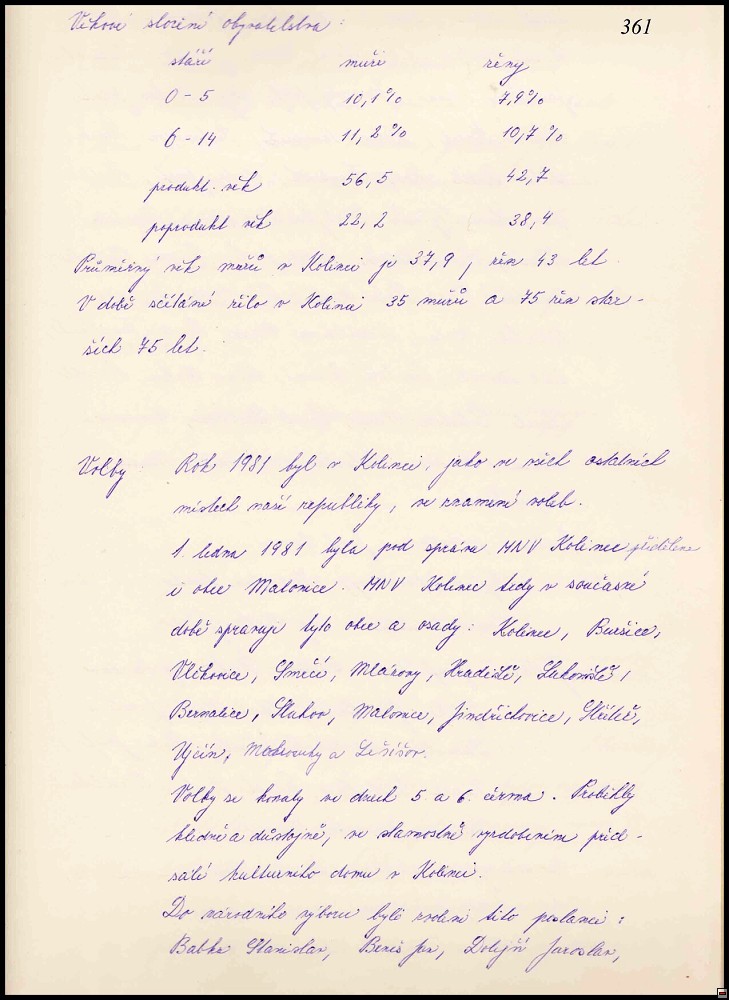 361
Věkové složení obyvatelstva :
stáří muži ženy
0 - 5 10,1 % 7,9 %
6 - 14 11,2 % 10,7 %
produkt. věk 56,5 42,7
poprodukt věk 22,2 38,4
Průměrný věk mužů v Kolinci je 37,9, žen 43 let.
V době sčítání žilo v Kolinci 35 mužů a 75 žen star-
ších 75 let.
Volby Rok 1981 byl v Kolinci, jako ve všech ostatních
místech naší republiky, ve znamení voleb.
1. ledna 1981 byla pod správu MNV Kolinec přidělena
i obec Malonice. MNV Kolinec tedy v současné
době spravuje tyto obce a osady: Kolinec, Buršice,
Vlčkovice, Smrčí, Mlázovy, Hradiště, Lukoviště,
Bernatice, Sluhov, Malonice, Jindřichovice, Střítež,
Ujčín, Mokrouhy a Lešišov.
Volby se konaly ve dnech 5. a 6. června. Proběhly
klidně a důstojně, ve slavnostně vyzdobeném před-
sálí kulturního domu v Kolinci.
Do národního výboru byli zvoleni tito poslanci :
Babka Stanislav, Beneš Jan, Dolejší Jaroslav,